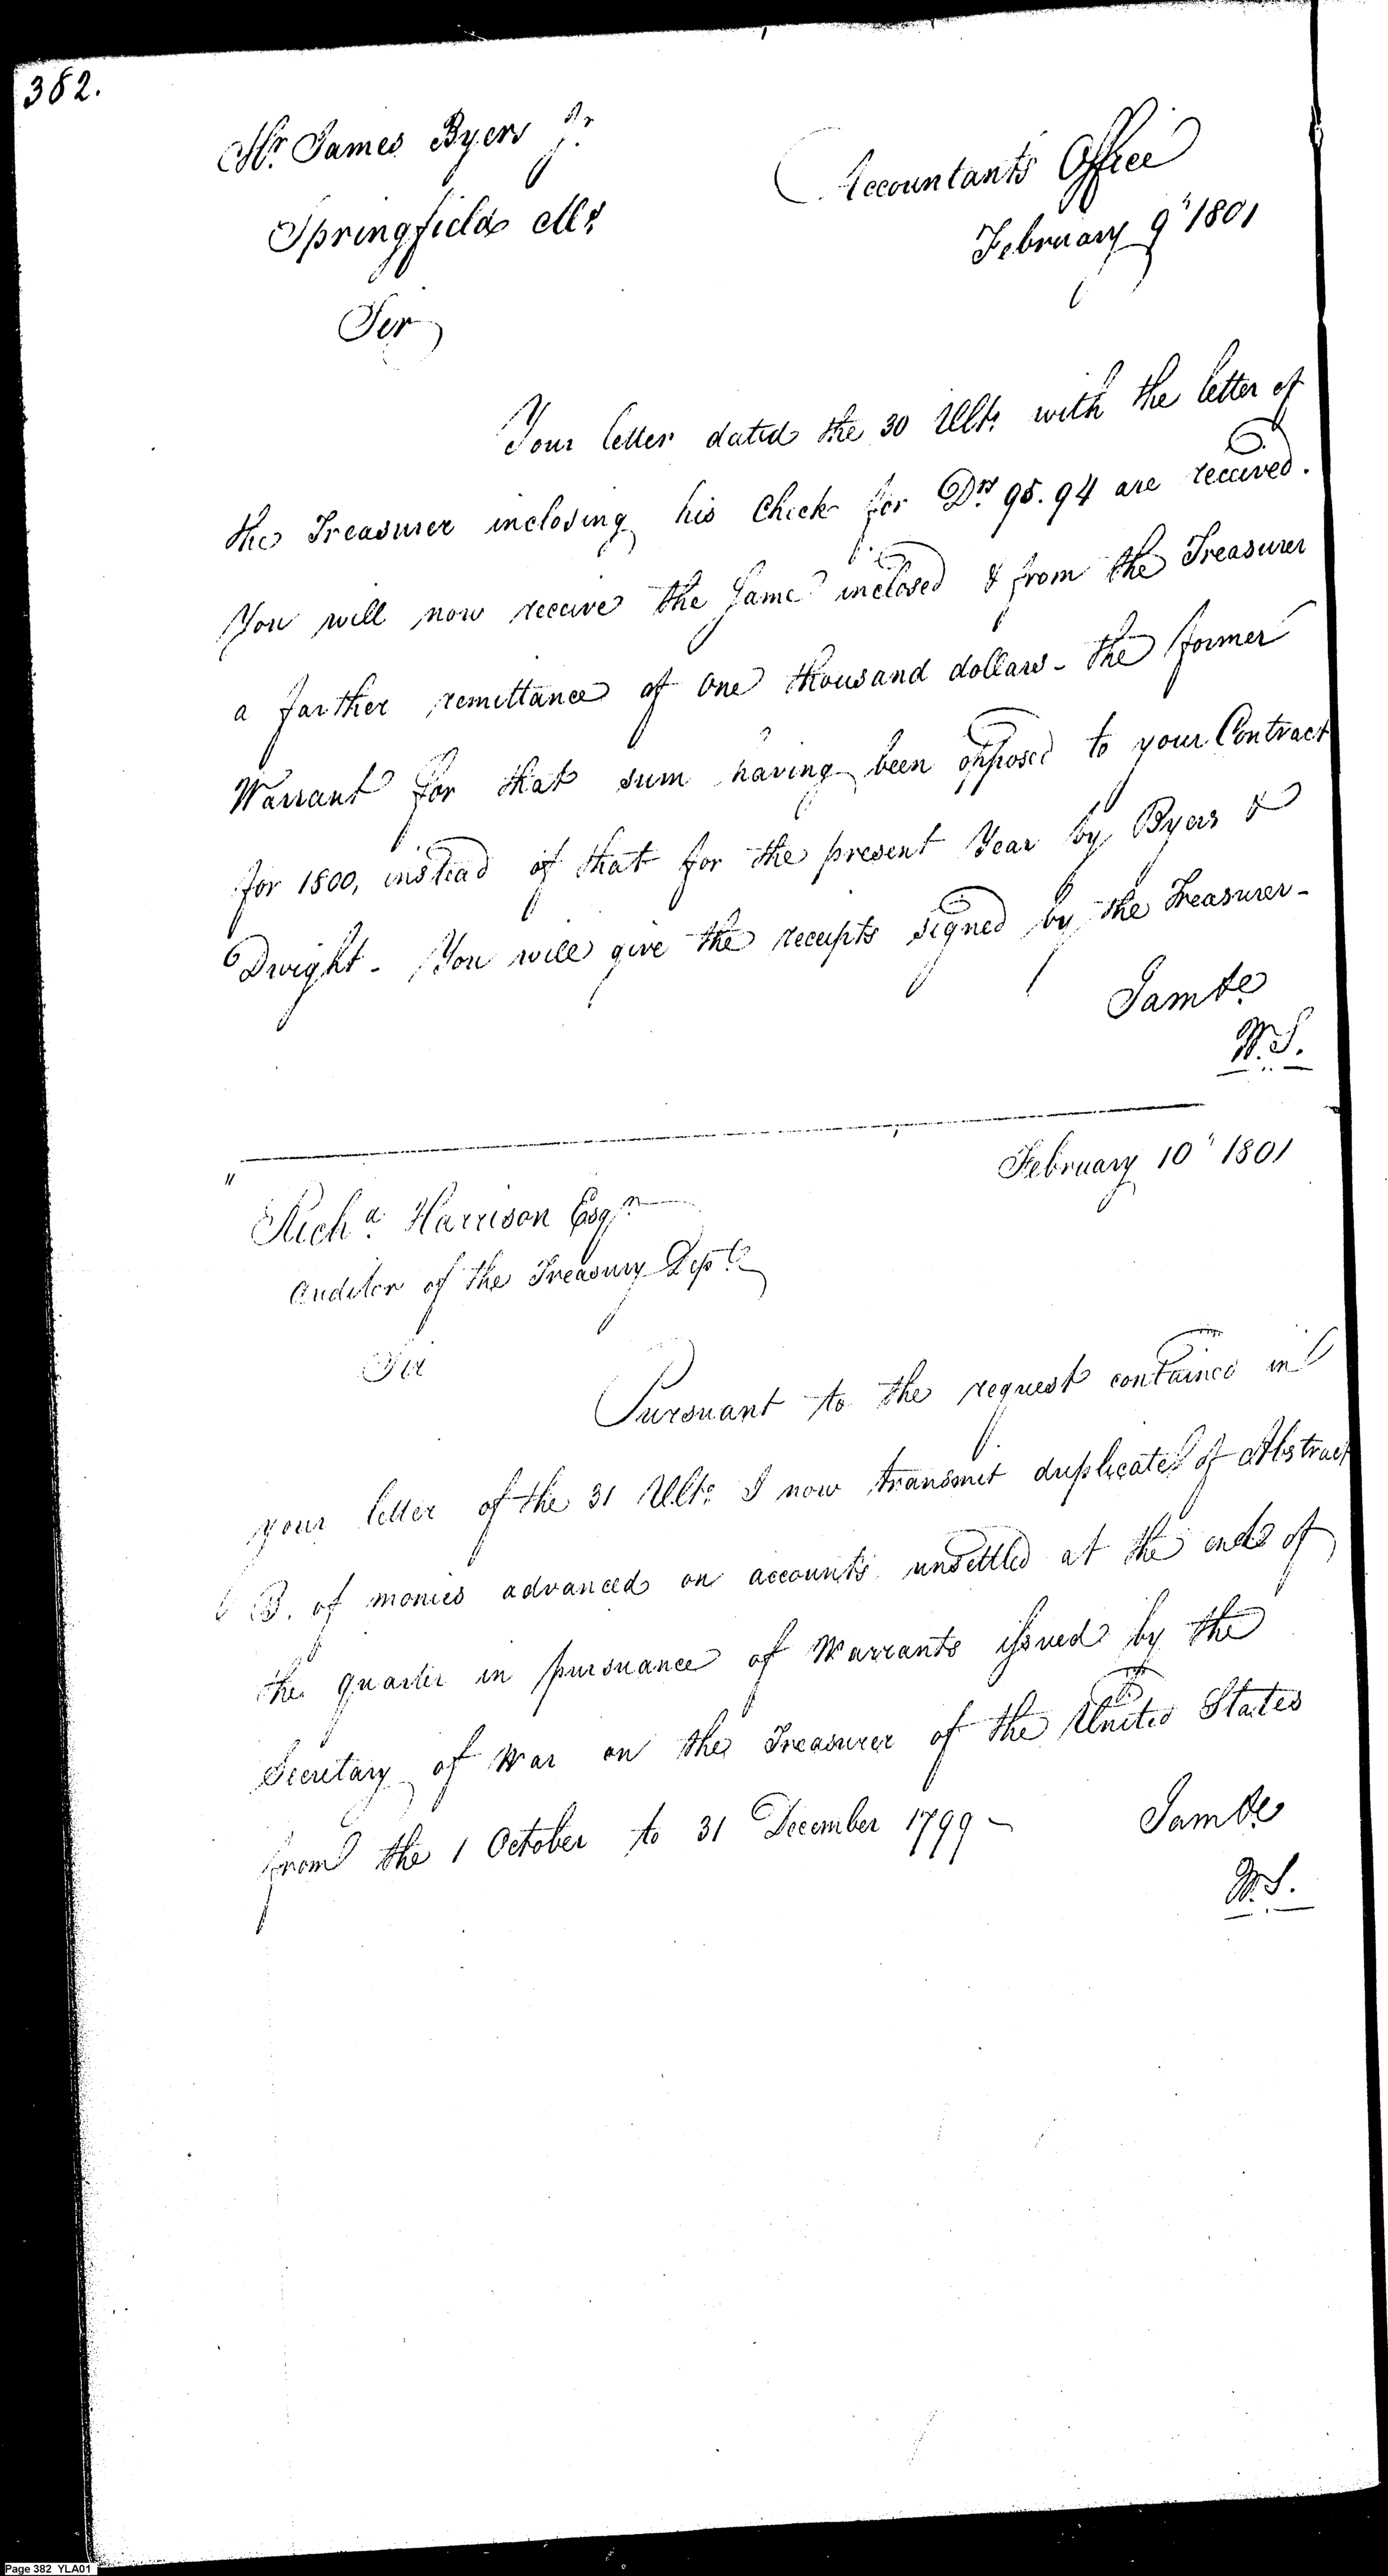 382.
Mr. James Byers Jr.
Springfield Ms.
Accountants Office
February 9' 1801
Sir
Your letter dated the 30 Ulto. with the letter of
the Treasurer inclosing his Check for Drs 95.94 are received.
You will now receive the same inclosed & from the Treasurer
a farther remittance of one thousand dollars - the former
Warrant for that sum having been opposed to your Contract
for 1800, instead of that for the present Year by Byers &
Dwight - You will give the receipts signed by the Treasurer -
I am &c
W. S.
"
February 10' 1801
Richd. Harrison Esqr
Auditor of the Treasury Dept.
Sir
Pursuant to the request contained in
your letter of the 31 Ulto. I now transmit duplicates of Abstract
B. of monies advanced on accounts unsettled at the end of
the quarter in pursuance of Warrants issued by the
Secretary of War on the Treasurer of the United States
from the 1 October to 31 December 1799 -
I am &c
W. S.
Page 382 YLA01